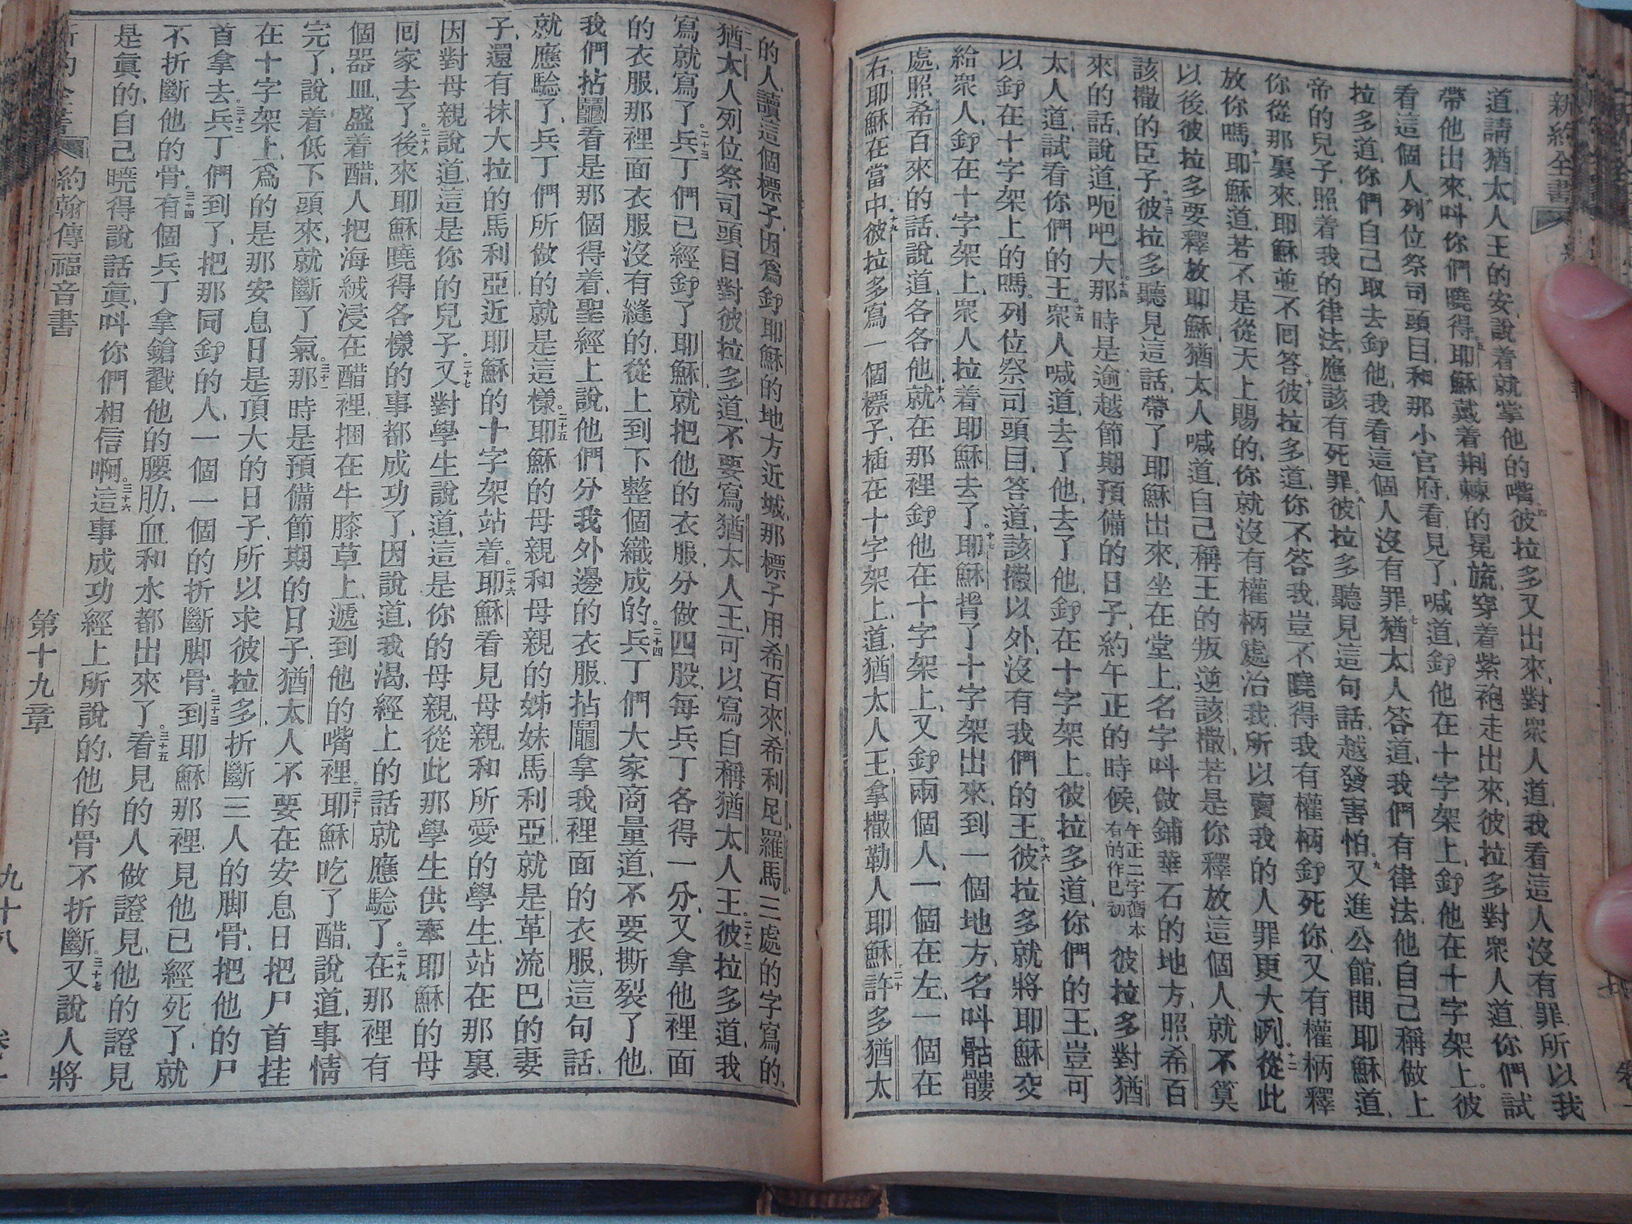 新約全書
道請猶太人王的安說着就掌他的嘴彼拉多又出來對衆人道我看這人沒有罪所以我
帶他出來叫你們曉得耶穌戴着荆棘的冕旒穿着紫袍走出來彼拉多對衆人道你們試
看這個人列位祭司頭目和那小官府看見了喊道釘他在十字架上釘他在十字架上彼
拉多道你們自己取去釘他我看這個人沒有罪猶太人答道我們有律法他自己稱做上
帝的兒子照着我的律法應該有死罪彼拉多聽見這句話越發害怕又進公館問耶穌道
你從那裏來耶穌並不囘答彼拉多道你不答我豈不曉得我有權柄釘死你又有權柄釋
放你嗎耶穌道若不是從天上賜的你就沒有權柄處治我所以賣我的人罪更大咧從此
以後彼拉多要釋放耶穌猶太人喊道自己稱王的叛逆該撒若是你釋放這個人就不算
該撒的臣子彼拉多聽見這話帶了耶穌出來坐在堂上名字叫做鋪華石的地方照希百
來的話說道呃吧大那時是逾越節期預備的日子約午正的時候午正二字舊本有的作巳初彼拉多對猶
太人道試看你們的王衆人喊道去了他去了他釘在十字架上彼拉多道你們的王豈可
以釘在十字架上的嗎列位祭司頭目答道該撒以外沒有我們的王彼拉多就將耶穌交
給衆人釘在十字架上衆人拉着耶穌去了耶穌揹了十字架出來到一個地方名叫骷髏
處照希百來的話說道各各他就在那裡釘他在十字架上又釘兩個人一個在左一個在
右耶穌在當中彼拉多寫一個標子插在十字架上道猶太人王拿撒勒人耶穌許多猶太
的人讀這個標子因爲釘耶穌的地方近城那標子用希百來希利尼羅馬三處的字寫的
猶太人列位祭司頭目對彼拉多道不要寫猶太人王可以寫自稱猶太人王彼拉多道我
寫就寫了兵丁們已經釘了耶穌就把他的衣服分做四股每兵丁各得一分又拿他裡面
的衣服那裡面衣服沒有縫的從上到下整個織成的兵丁們大家商量道不要撕裂了他
我們拈鬮看是那個得着聖經上說他們分我外邊的衣服拈鬮拿我裡面的衣服這句話
就應騐了兵丁們所做的就是這樣耶穌的母親和母親的姊妹馬利亞就是革流巴的妻
子還有抹大拉的馬利亞近耶穌的十字架站着耶穌看見母親和所愛的學生站在那裏
因對母親說道這是你的兒子又對學生說道這是你的母親從此那學生供奉耶穌的母
囘家去了後來耶穌曉得各樣的事都成功了因說道我渴經上的話就應騐了在那裡有
個器皿盛着醋人把海絨浸在醋裡捆在牛膝草上遞到他的嘴裡耶穌吃了醋說道事情
完了說着低下頭來就斷了氣那時是預備節期的日子猶太人不要在安息日把尸首挂
在十字架上爲的是那安息日是頂大的日子所以求彼拉多折斷三人的脚骨把他的尸
首拿去兵丁們到了把那同釘的人一個一個的折斷脚骨到耶穌那裡見他已經死了就
不折斷他的骨有個兵丁拿鎗戳他的腰肋血和水都出來了看見的人做證見他的證見
是眞的自己曉得說話眞叫你們相信啊這事成功經上所說的他的骨不折斷又說人將
新約全書
約翰傳福音書
第十九章
九十八